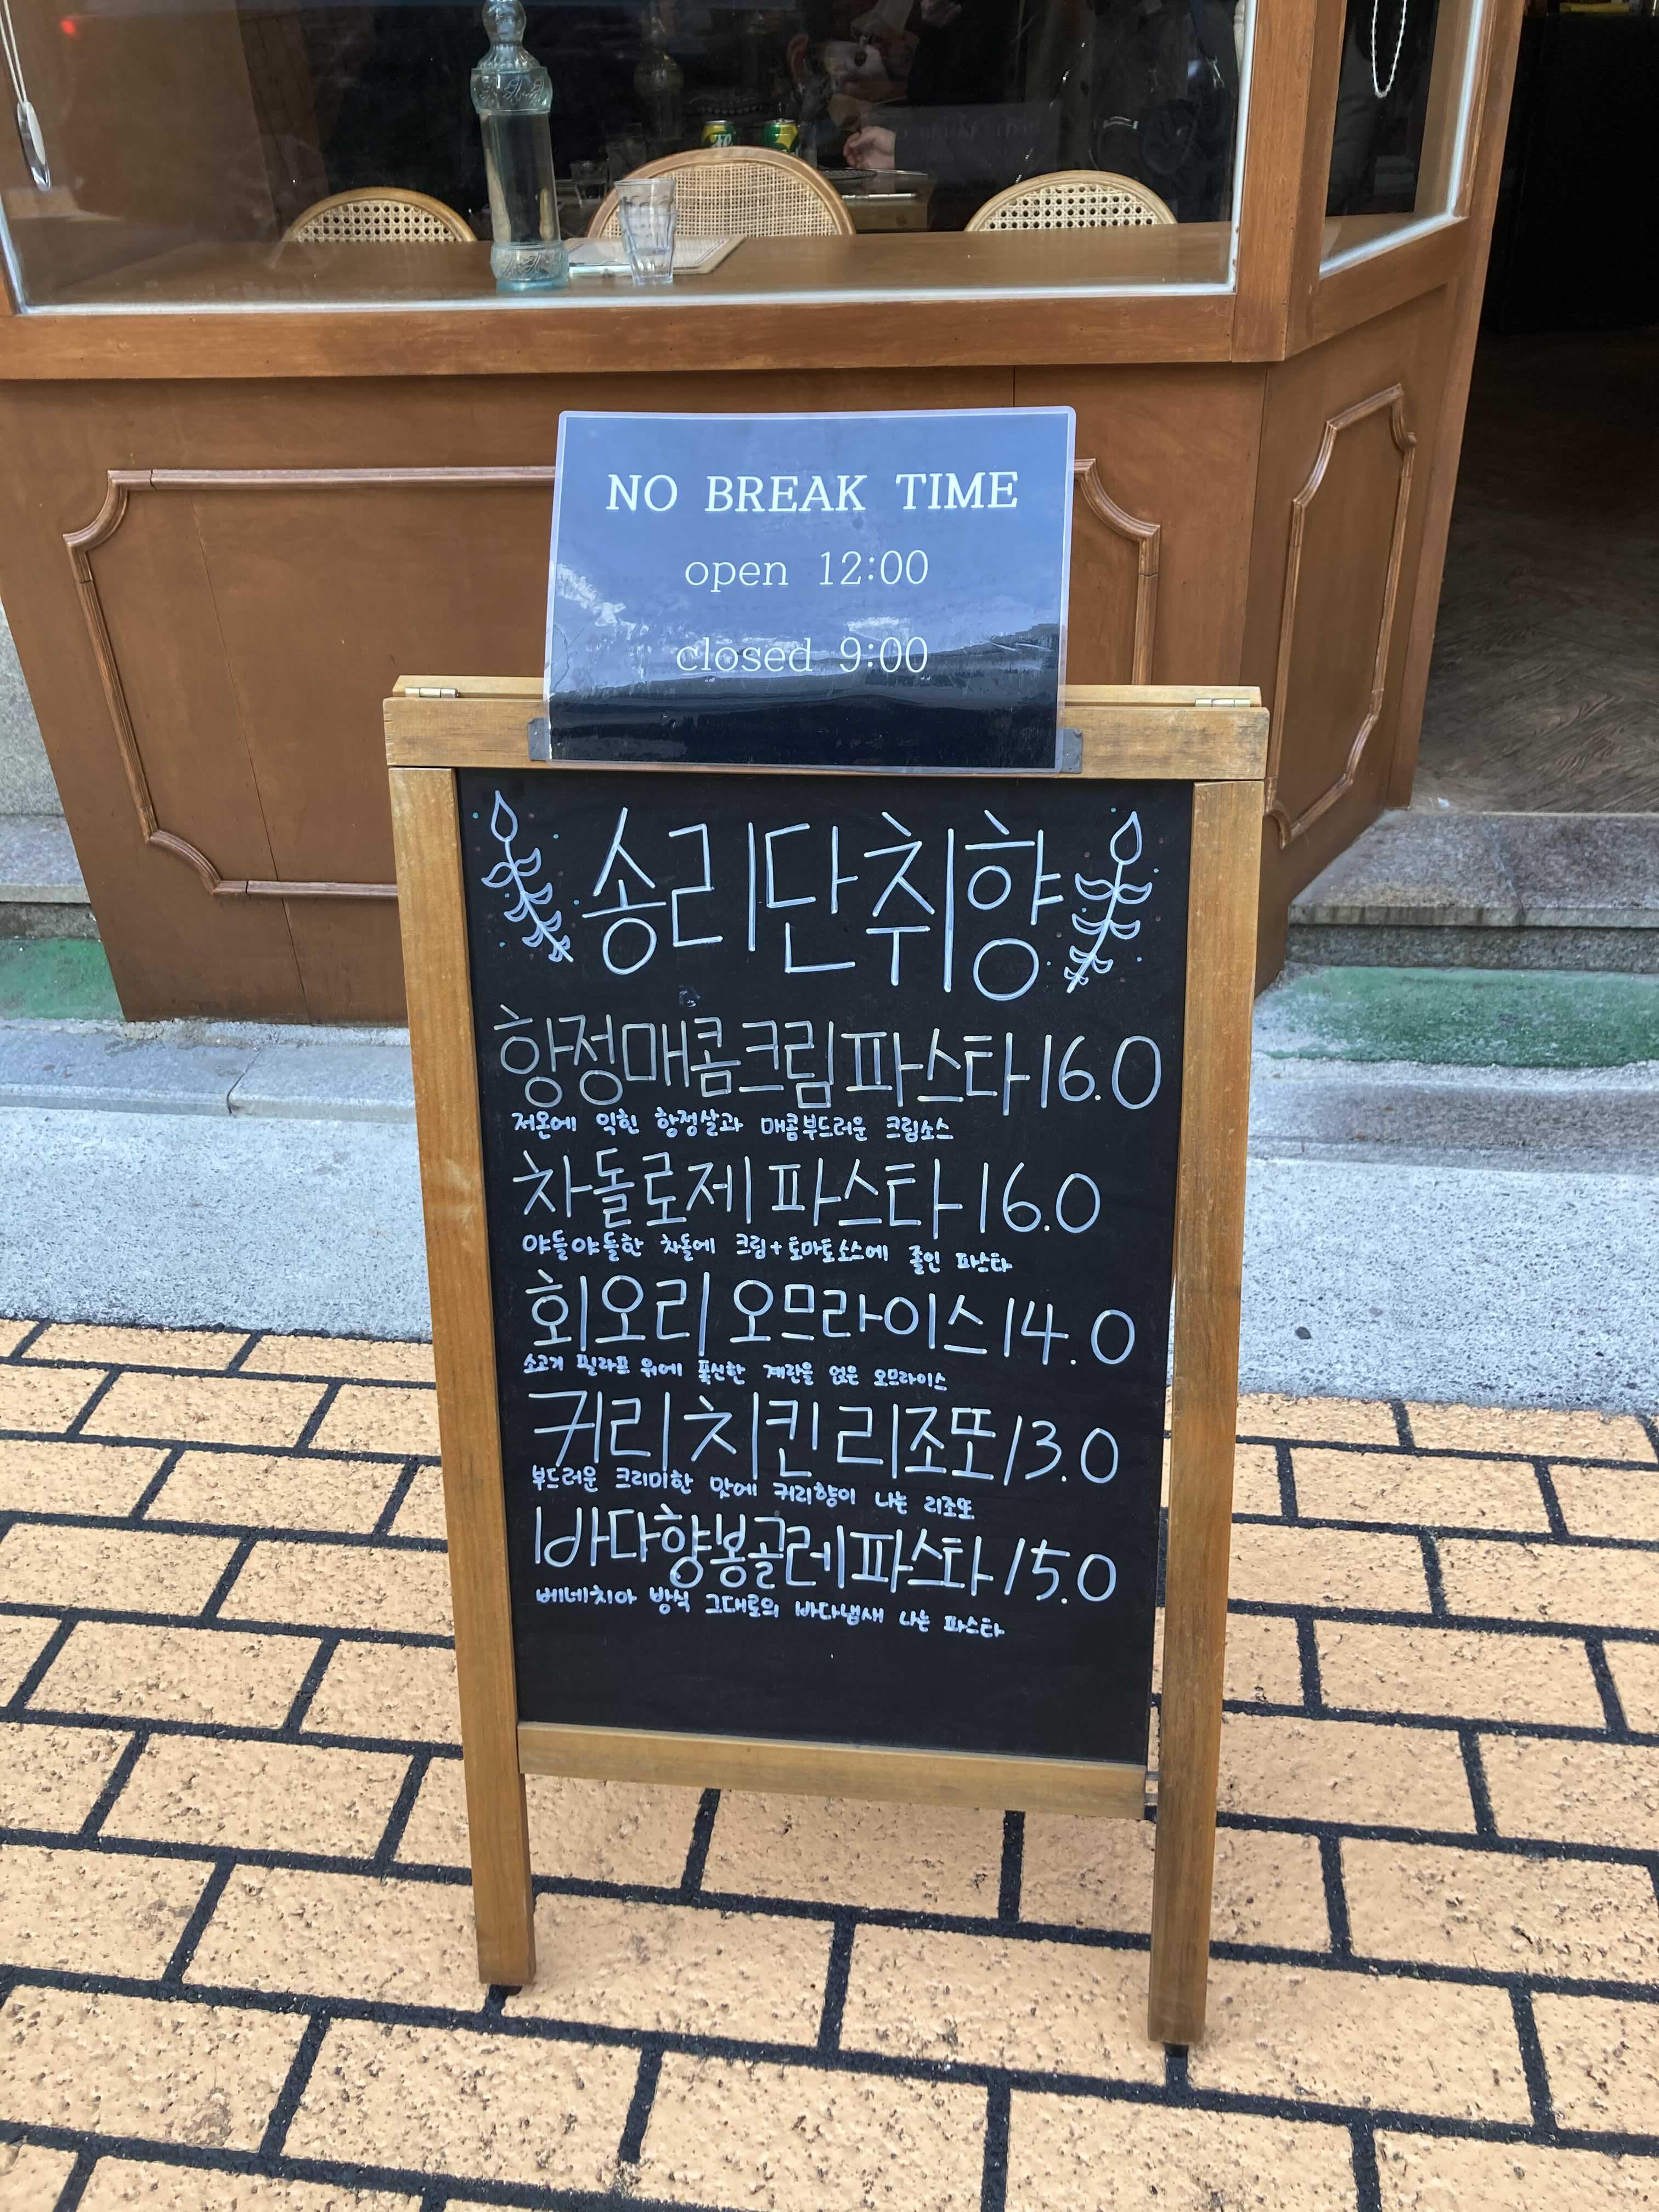 NO BREAK TIME
open 12:00
closed 9:00
송리단취향
항정매콤크림파스타 16.0
저온에 익힌 항정살과 매콤부드러운 크림소스
차돌로제 파스타 16.0
야들야들한 차돌에 크림+토마토소스에 졸인 파스타
회오리 오므라이스 14.0
소고기 필라프 위에 폭신한 계란을 얹은 오므라이스
커리 치킨 리조또 13.0
부드러운 크리미한 맛에 커리향이 나는 리조또
바다향봉골레파스타 15.0
베네치아 방식 그대로의 바다냄새 나는 파스타